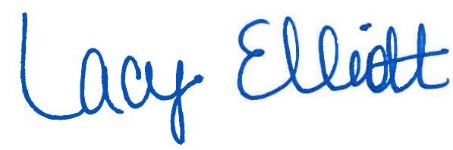 Lacy Elliott